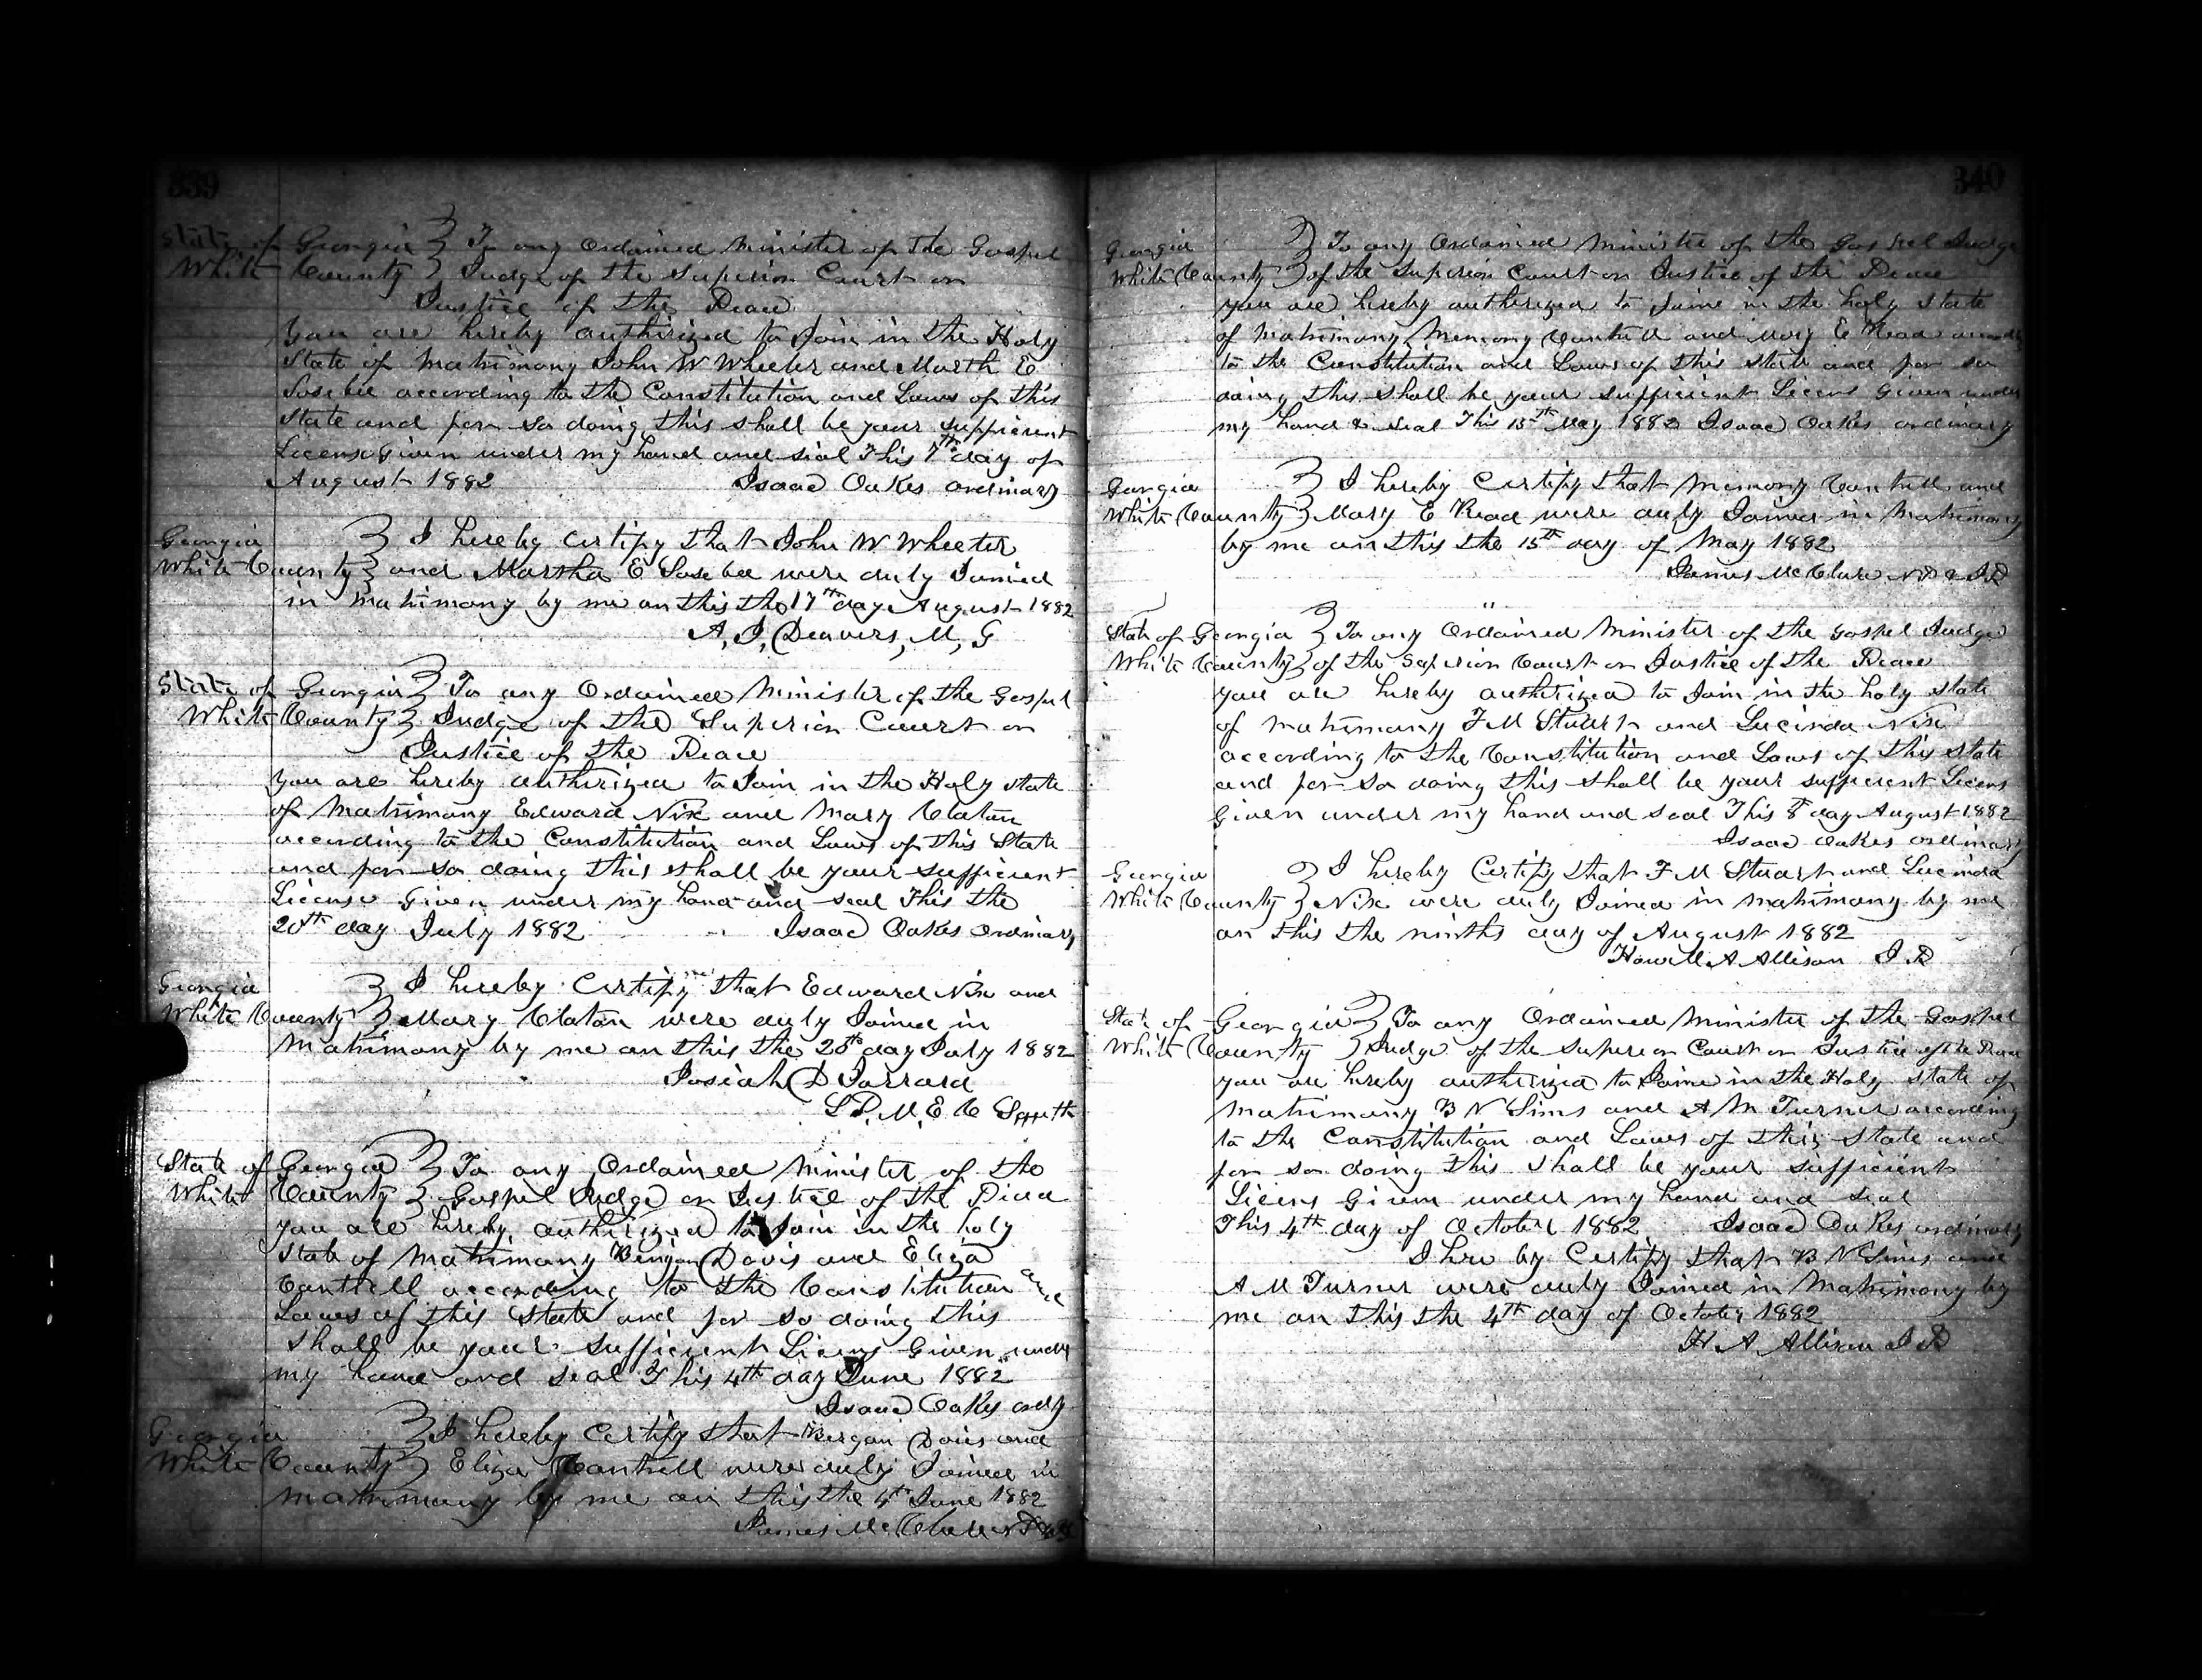 339
State of Georgia } To any Ordained Minister of The Gospel
White County } Judge of the Superior Court or
Justice of the Peace
You are hereby authorized to Join in the Holy
State of Matrimony John W Wheeler and Marth E
Sosebee according to the Constitution and Laws of this
State and for so doing this shall be your sufficient
License Given under my hand and seal This 7th day of
August 1882 Isaac Oakes ordinary
Georgia } I hereby Certify that John W Wheeter
White County } and Martha E Sosebee were duly Joined
in Matrimony by me on this the 17th day August 1882
A, J, Deavers, M, G
State of Georgia } To any Ordained Minister of the Gospel
White County } Judge of the Superior Court or
Justice of the Peace
You are hereby authorized to Join in the Holy state
of Matrimony Edward Nix and Mary Claton
according to the Constitution and Laws of this State
and for so doing this shall be your sufficient
License Given under my hand and seal This the
20th day July 1882 Isaac Oakes Ordinary
Georgia } I hereby Certify that Edward Nix and
White County } Mary Claton were duly Joined in
Matrimony by me on this the 20th day July 1882
Josiah D
L.P. M, E C
State of Georgia } To any Ordained Minister of the
White County } Gospel Judge or Justice of the Peace
You are hereby authorized to Join in the holy
State of Matrimony Davis and Eliza
Cantrell according to the Constitution and
Laws of this State and for so doing this
shall be your sufficient Licens Given under
my hand and seal This 4th day June 1882
Isaac Oakes ordy
Georgia } I hereby Certify that Davis and
White County } Eliza Cantrell were duly Joined in
Matrimony by me on this the 4th June 1882
James McClure
340
Georgia } To any Ordained Minister of the Gospel Judge
White County } of the Superior Court or Justice of the Peace
you are hereby authorized to Joine in the holy State
of Matrimony Cantrell and Mary E Read
to the Constitution and Laws of this State and for so
doing this shall be your sufficient Licens Given under
my hand & seal This 15th May 1882 Isaac Oakes ordinary
Georgia } I hereby Certify that Cantrell and
White County } Mary E Read were duly Joined in Matrimony
by me on this the 15th day of May 1882
James McClure NP & JP
State of Georgia } To any Ordained Minister of the Gospel Judge
White County } of the Superior Court or Justice of the Peace
you are hereby authorized to Join in the holy state
of Matrimony F M Stuart and Lucinda Nix
according to the Constitution and Laws of this state
and for so doing this shall be your sufficient Licens
Given under my hand and seal This 8th day August 1882
Isaac Oakes ordinary
Georgia } I hereby Certify that F M Stuart and Lucinda
White County } Nix were duly Joined in Matrimony by me
on this the ninths day of August 1882
Howell A Allison J P
State of Georgia } To any Ordained Minister of the Gospel
White County } Judge of the Superior Court or Justice of the Peace
you are hereby authorized to Joine in the Holy state of
Matrimony B N Sims and A M Turner according
to the Constitution and Laws of this State and
for so doing this shall be your sufficient
Licens Given under my hand and seal
This 4th day of October 1882 Isaac Oakes ordinary
I here by Certify that B N Sims and
A M Turner were duly Joined in Matrimony by
me on this the 4th day of October 1882
H A Allison J P